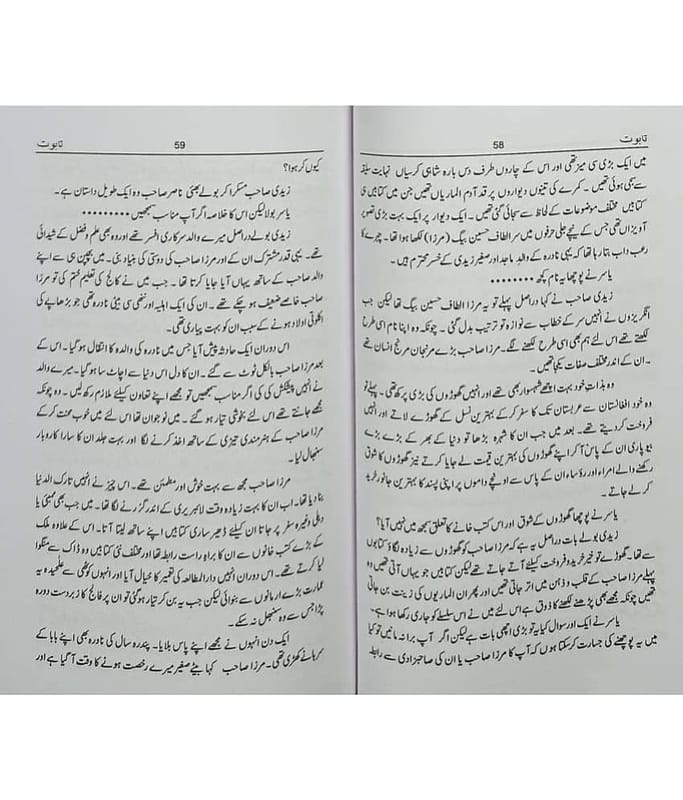 تابوت
58
میں ایک بڑی سی میز تھی اور اس کے چاروں طرف دس بارہ شاہی کرسیاں نہایت سلیقہ
سے سجی ہوئی تھیں۔ کمرے کی تینوں دیواروں پر قد آدم الماریاں تھیں جن میں کتابیں ہی
کتابیں مختلف موضوعات کے لحاظ سے سجائی گئی تھیں۔ ایک دیوار پر ایک بہت بڑی تصویر
آویزاں تھی جس کے نیچے جلی حرفوں میں سر الطاف حسین بیگ (مرزا) لکھا ہوا تھا۔ چہرے کا
رعب داب بتا رہا تھا کہ یہی نادرہ کے والد ماجد اور صغیر زیدی کے خسر محترم ہیں۔
یاسر نے پوچھا یہ نام کچھ ........
زیدی صاحب نے کہا دراصل پہلے تو یہ مرزا الطاف حسین بیگ تھا لیکن جب
انگریزوں نے انہیں سر کے خطاب سے نوازہ تو ترتیب بدل گئی۔ چونکہ وہ اپنا نام اسی طرح
لکھتے تھے اس لئے ہم بھی اسی طرح لکھنے لگے۔ مرزا صاحب بڑے مرنجان مرنج انسان تھے
۔ ان کے اندر مختلف صفات یکجا تھیں۔
وہ بذات خود بہت اچھے شہسوار بھی تھے اور انہیں گھوڑوں کی بڑی پرکھ تھی۔ پہلے تو
وہ خود افغانستان سے عربستان تک کا سفر کر کے بہترین نسل کے گھوڑے لاتے اور انہیں
فروخت کر دیتے تھے۔ بعد میں جب ان کا شہرہ بڑھا تو دنیا کے بھر کے بڑے بڑے
بیوپاری ان کے پاس آ کر اپنے گھوڑوں کی بہترین قیمت لے جایا کرتے نیز گھوڑوں کا شوق
رکھنے والے امراء اور رؤساء ان کے پاس سے اونچے داموں پر اپنی پسند کا بہترین جانور خرید
کر لے جاتے۔
یاسر نے پوچھا گھوڑوں کے شوق اور اس کتب خانے کا تعلق سمجھ میں نہیں آیا؟
زیدی بولے بات دراصل یہ ہے کہ مرزا صاحب کو گھوڑوں سے زیادہ لگاؤ کتابوں
سے تھا۔ گھوڑے تو خیر خرید و فروخت کیلئے آتے جاتے تھے لیکن کتابیں جو یہاں آتی تھیں وہ
پہلے مرزا صاحب کے قلب و ذہن میں اتر جاتی تھیں اور پھر ان الماریوں کی زینت بن جاتی
تھیں چونکہ مجھے بھی پڑھنے لکھنے کا ذوق ہے اس لئے میں نے اس سلسلے کو جاری رکھا ہوا ہے
یاسر نے ایک اور سوال کیا یہ تو بڑی اچھی بات ہے لیکن اگر آپ برا نہ مانیں تو کیا
میں یہ پوچھنے کی جسارت کر سکتا ہوں کہ آپ کا مرزا صاحب یا ان کی صاحبزادی سے رابطہ
59
تابوت
کیوں کر ہوا؟
زیدی صاحب مسکرا کر بولے بھئی ناصر صاحب وہ ایک طویل داستان ہے۔
یاسر بولا لیکن اس کا خلاصہ اگر آپ مناسب سمجھیں ........
زیدی بولے دراصل میرے والد سرکاری افسر تھے اور وہ بھی علم و فضل کے شیدائی
تھے۔ یہی قدر مشترک ان کے اور مرزا صاحب کی دوستی کی بنیاد بنی۔ میں بچپن ہی سے اپنے
والد صاحب کے ساتھ یہاں آیا جایا کرتا تھا۔ جب میں نے کالج کی تعلیم ختم کی تو مرزا
صاحب خاصے ضعیف ہو چکے تھے۔ ان کی ایک اہلیہ اور ننھی سی بیٹی نادرہ تھی جو بڑھاپے کی
اکلوتی اولاد ہونے کے سبب ان کو بہت پیاری تھی۔
اس دوران ایک حادثہ پیش آیا جس میں نادرہ کی والدہ کا انتقال ہو گیا۔ اس کے
بعد مرزا صاحب بالکل ٹوٹ سے گئے۔ ان کا دل اس دنیا سے اچاٹ سا ہو گیا۔ میرے والد
نے انہیں پیشکش کی کی اگر مناسب سمجھیں تو مجھے اپنے تعاون کیلئے ملازم رکھ لیں۔ وہ چونکہ
مجھے جانتے تھے اس لئے بخوشی تیار ہو گئے۔ میں نوجوان تھا اس لئے میں خوب محنت کر کے
مرزا صاحب کے ہنر مندی تیزی کے ساتھ اخذ کرنے لگا اور بہت جلد ان کا سارا کاروبار
سنبھال لیا۔
مرزا صاحب مجھ سے بہت خوش اور مطمئن تھے۔ اس چیز نے انہیں تارک الدنیا
بنا دیا تھا۔ اب ان کا بہت زیادہ وقت لائبریری کے اندر گزرنے لگا تھا۔ میں جب بھی ممبئی یا
دہلی وغیرہ سفر پر جاتا ان کیلئے ڈھیر ساری کتابیں اپنے ساتھ لیتا آتا۔ اس کے علاوہ ملک
کے بڑے کتب خانوں سے ان کا براہ راست رابطہ تھا اور مختلف نئی کتابیں وہ ڈاک سے منگوا
لیا کرتے تھے۔ اس دوران انہیں دار المطالعہ کی تعمیر کا خیال آیا اور انہوں کوٹھی سے علٰیحدہ یہ
عمارت بڑے ارمانوں سے بنوائی لیکن جب یہ بن کر تیار ہو گئی تو ان پر فالج کا زبردست دورہ
پڑا جس سے وہ سنبھل نہ سکے۔
ایک دن انہوں نے مجھے اپنے پاس بلایا۔ پندرہ سال کی نادرہ بھی اپنے بابا کے
سرہانے کھڑی تھی۔ مرزا صاحب کہا بیٹے صغیر میرے رخصت ہونے کا وقت آ گیا ہے اور